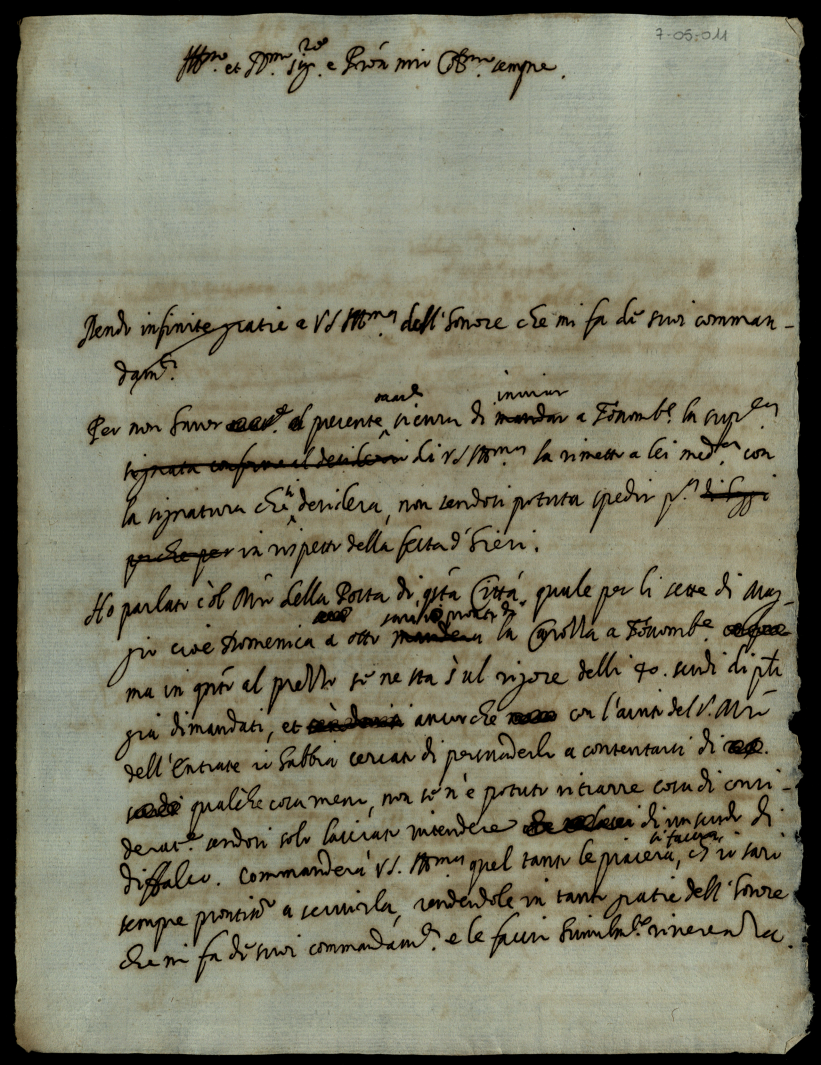 7-05-011
Ill.mo et P.mo Sig.re e Pron mio Oss.mo sempre.
Rendo infinite gratie a VS Ill.ma dell'honore che mi fa de suoi comman-
dam.ti
Per non haver al presente sicura di inviar a la
di VS Ill.ma la rimetto a lei med.ma con
la signatura che desidera, non sendosi potuta spedir p.a
in rispetto della festa d'hieri.
Ho parlato col Mro della Posta di q.sta Città, quale per li sette di Mag-
gio cioè Domenica a otto la a
ma in q.to al prezzo se ne sta sul rigore delli 40. scudi di
già dimandati, et ancorche con l'aiuto del S.
dell'Entrate io habbia cercato di persuaderlo a contentarsi di
qualche cosa meno, non se n'è potuto ritrarre cosa di consi-
derat.e sendosi solo lasciato intendere di un scudo di
diffalco. Commanderà VS. Ill.ma quel tanto le piacerà si faccia, ch'io sarò
sempre prontiss.o a servirla, rendendole in tanto gratie dell'honore
che mi fa de suoi commandam.ti e le faccio humilm.te riverenza.